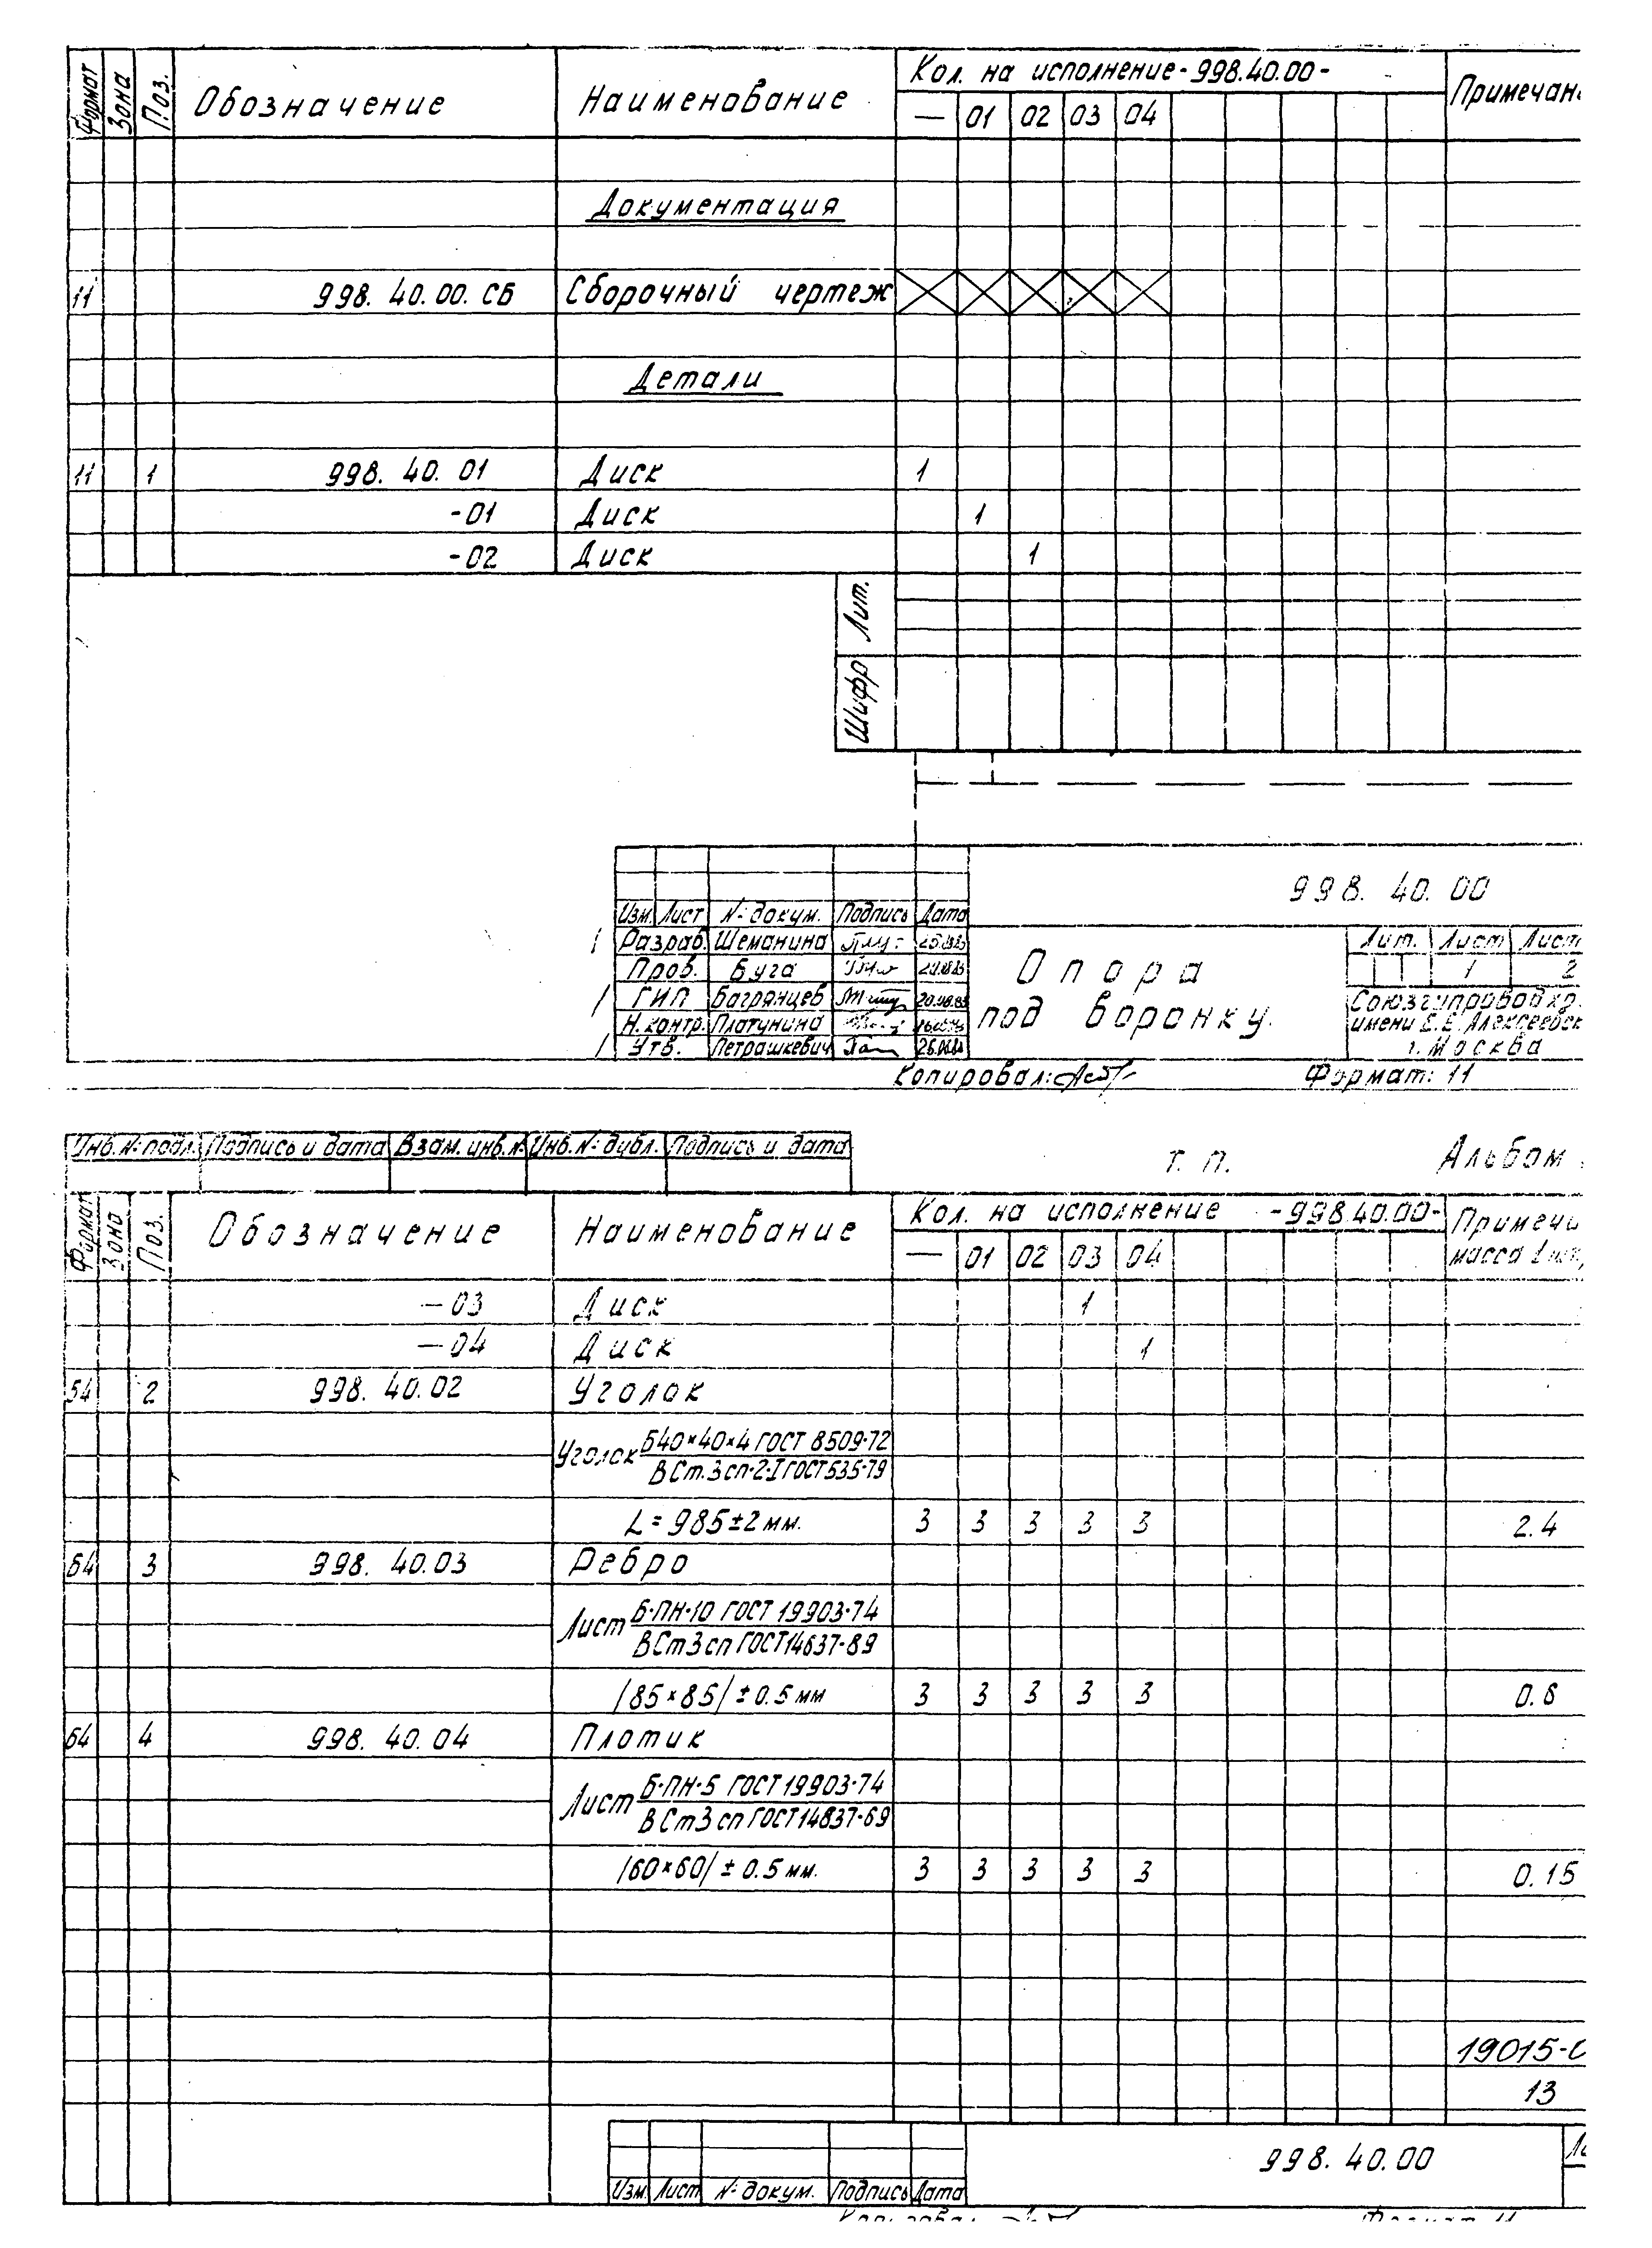 Формат Зона Поз. Обозначение Наименование Кол. на исполнение-998.40.00- Примечан
— 01 02 03 04
Документация
11 998. 40. 00. СБ Сборочный чертеж
Детали
11 1 998. 40. 01 Диск 1
-01 Диск 1
-02 Диск 1
Лит.
Шифр
998. 40. 00
Изм. Лист № докум. Подпись Дата
Разраб. Шеманина
Пров. Буга
ГИП Багрянцев
Н.контр. Платунина
Утв. Петрашкевич
Опора
под воронку.
Лит. Лист Лист
1 2
Союзгипроводхо
имени Е.Е. Алексеевск
г. Москва
Копировал: Формат: 11
Инв. № подл. Подпись и дата Взам. инв. № Инв. № дубл. Подпись и дата Т. П. Альбом
Формат Зона Поз. Обозначение Наименование Кол. на исполнение -998.40.00- Примеча
— 01 02 03 04 масса 1 шт,
—03 Диск 1
—04 Диск 1
2 998. 40. 02 Уголок
Уголок Б40×40×4 ГОСТ 8509-72
ВСт.3сп-2-I ГОСТ 535-79
L = 985±2 мм. 3 3 3 3 3 2.4
Б4 3 998. 40.03 Ребро
Лист Б-ПН-10 ГОСТ 19903-74
ВСт3сп ГОСТ 14637-89
/85×85/ ±0.5 мм 3 3 3 3 3
Б4 4 998. 40. 04 Плотик
Лист Б-ПН-5 ГОСТ 19903-74
ВСт3сп ГОСТ 14637-69
/60×60/ ± 0.5 мм. 3 3 3 3 3 0.15
19015-0
13
998. 40. 00
Изм. Лист № докум. Подпись Дата